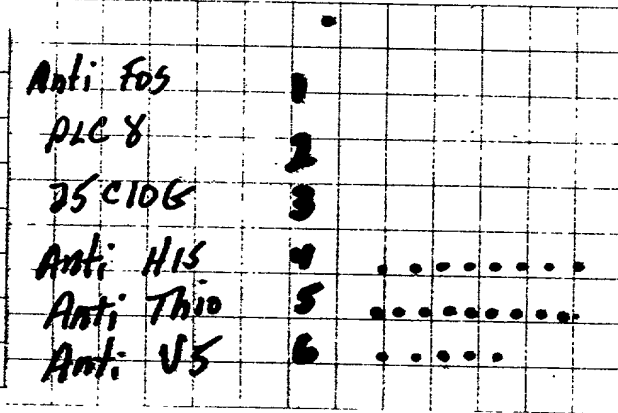 Anti Fos 1
PLC 8 2
25C10G 3
Anti HIS 4 . . . . . . . .
Anti Thio 5 . . . . . . . . .
Anti V5 6 . . . . .